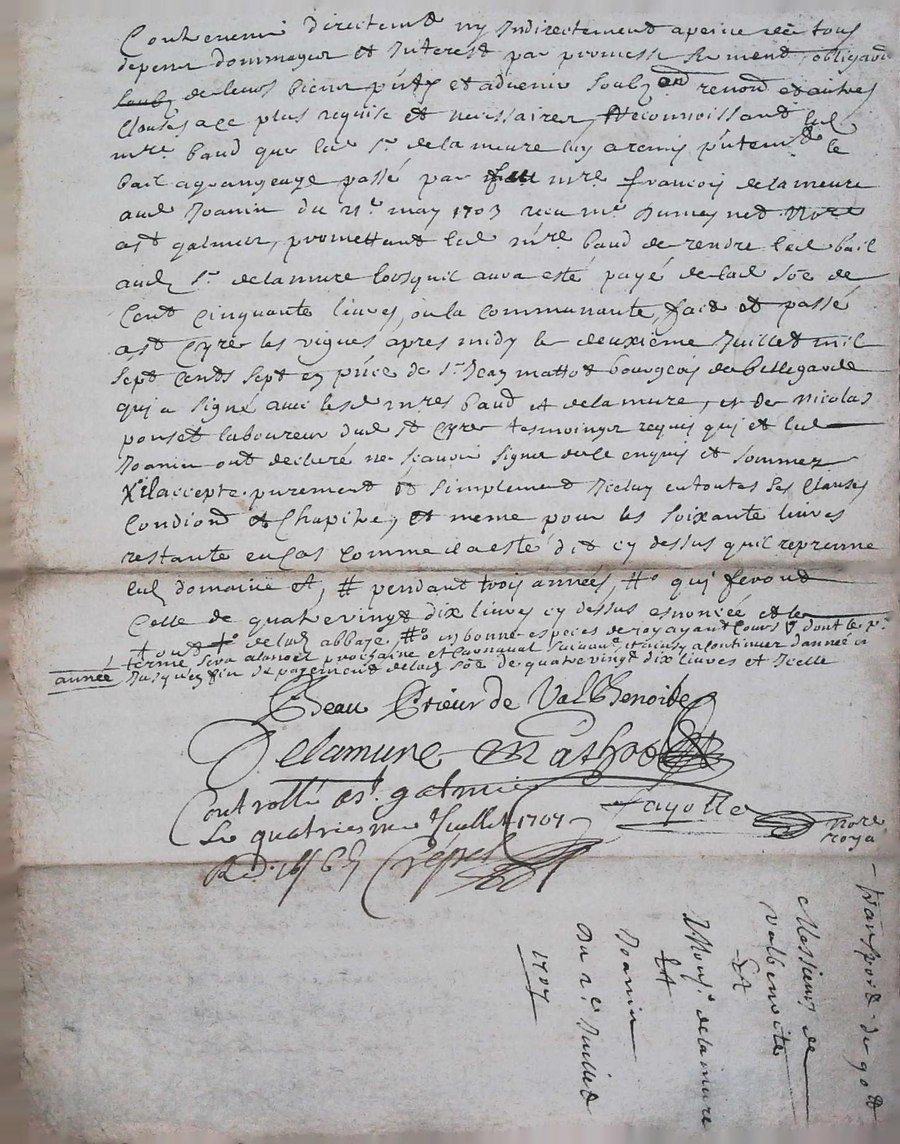 Contrevenir directemt ny Indirectement apeine de tous
depens dommages et Interest par promesse serment obligaōn
de leurs biens pñts et advenir soubz renond et autres
Clauses ace plus requise et necessaires, Reconnoissant led
mre baud que led sr delameure luy a remis pñtemt le
bail agrangeage passé par mre françois delameure
aud Joanin du 21e may 1703 receu me Dumeynet Nore
a st galmier, promettant led mre baud de rendre led bail
aud sr delamure lorsquil aura esté payé de lad soē de
Cent Cinquante livres, ou la communauté, faict et passé
a st Cyre les vignes apres midy le deuxième Juillet mil
sept Cents sept en pñce de sr Jean mattot bourgeois de bellegarde
qui a signé avec lesd mres baud et delamure, et de nicolas
ponset laboureur dud st Cyre tesmoings requis qui et led
Joanin ont declaré ne scavoir signer de ce enquis et sommez
x il accepte purement et simplement Iceluy en toutes ses Clauses
Condiōns et Chapitre, et meme pour les soixante livres
restante en Cas comme il a esté dit cy dessus quil reprenne
led domaine et, # pendant trois années, #o qui feront
Celle de quatrevingt dix livres cy dessus esnoncée et le
tout de lad abbaye #o en bonne especes de roy ayant Cours dont le pr
terme sera a la noel prochaine et carnaval suivant, et ainsy a continuer dannée a
année Jusques fin de payement de lad soē de quatrevingt dix livres et Icelle
Beau Prieur de Valbenoite
Delamure
Controllé a st galmier
Le quatriesme Juillet 1707
Fayolle
Nore
Roya
Crepet
transport de 90 tt
Messieurs de
valbenoite
Et
Monsr delamure
Et
Joanin
Du 2e Juillet
1707